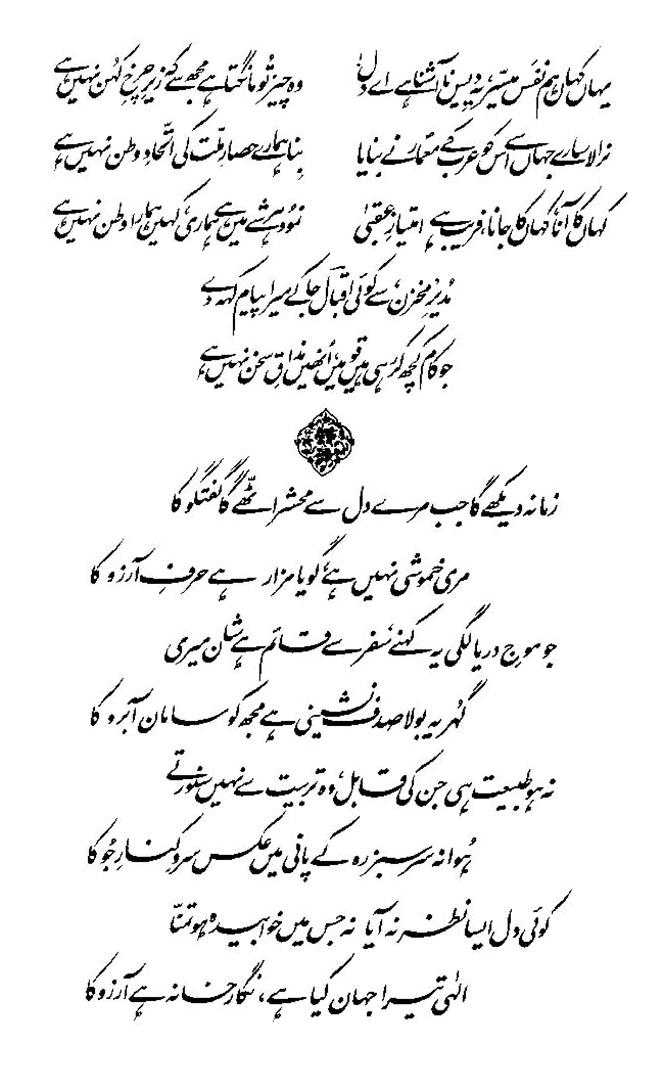 یہاں کہاں ہم نفَس میسّر، یہ دیس ناآشنا ہے اے دل! وہ چیز تُو مانگتا ہے مجھ سے کہ زیرِ چرخِ کُہن نہیں ہے
نرالا سارے جہاں سے اس کو عرب کے معمار نے بنایا بِنا ہمارے حصارِ ملّت کی اتّحادِ وطن نہیں ہے
کہاں کا آنا، کہاں کا جانا، فریب ہے امتیازِ عقبیٰ نمود ہر شے میں ہے ہماری، کہیں ہمارا وطن نہیں ہے
مُدیرِ ’مخزن‘ سے کوئی اقبالؔ جا کے میرا پیام کہہ دے
جو کام کچھ کر رہی ہیں قومیں، اُنھیں مذاقِ سخن نہیں ہے
زمانہ دیکھے گا جب مرے دل سے محشر اٹھّے گا گفتگو کا
مری خموشی نہیں ہے، گویا مزار ہے حرفِ آرزو کا
جو موجِ دریا لگی یہ کہنے، سفر سے قائم ہے شان میری
گُہر یہ بولا صدف نشینی ہے مجھ کو سامان آبرو کا
نہ ہو طبیعت ہی جن کی قابل، وہ تربیت سے نہیں سنورتے
ہُوا نہ سرسبز رہ کے پانی میں عکس سروِ کنارِ جُو کا
کوئی دل ایسا نظر نہ آیا نہ جس میں خوابیدہ ہو تمنّا
الٰہی تیرا جہان کیا ہے، نگارخانہ ہے آرزو کا